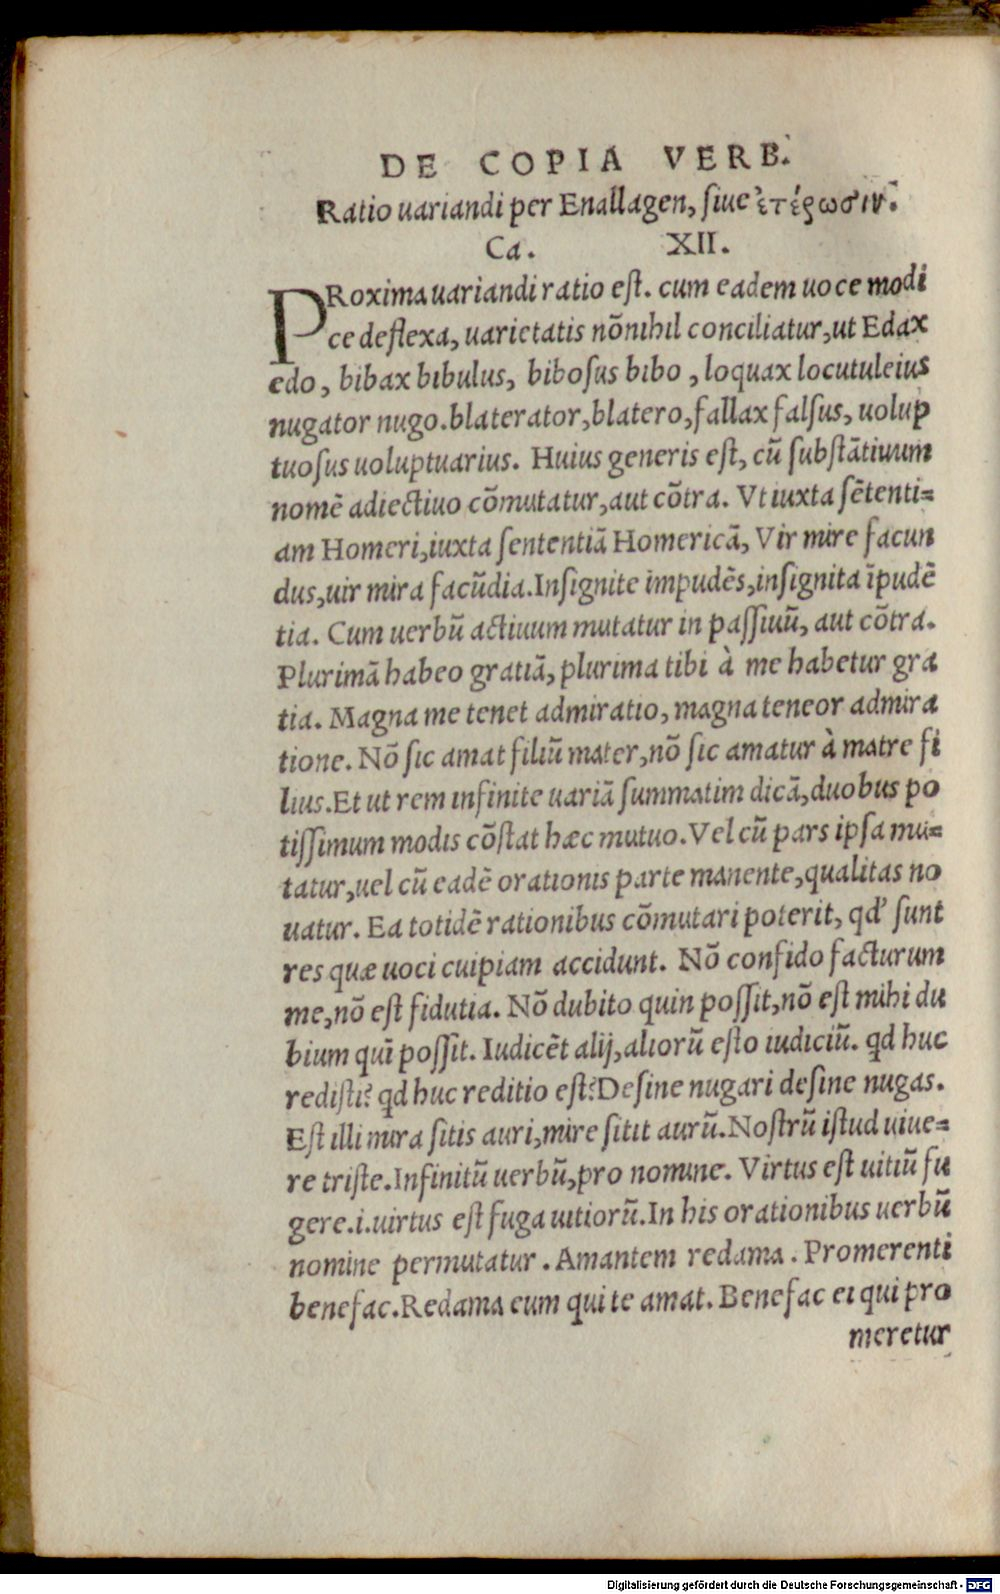 DE COPIA VERB.
Ratio uariandi per Enallagen, siue ἑτέρωσιν.
Ca. XII.
PRoxima uariandi ratio est. cum eadem uoce modi
ce deflexa, uarietatis nõnihil conciliatur,ut Edax
edo, bibax bibulus, bibosus bibo, loquax locutuleius
nugator nugo.blaterator,blatero,fallax falsus, uolup
tuosus uoluptuarius. Huius generis est, cũ substãtiuum
nomẽ adiectiuo cõmutatur,aut cõtra. Vt iuxta sẽtenti=
am Homeri,iuxta sententiã Homericã, Vir mire facun
dus,uir mira facũdia.Insignite impudẽs,insignita ĩpudẽ
tia. Cum uerbũ actiuum mutatur in passiuũ, aut cõtra.
Plurimã habeo gratiã,plurima tibi à me habetur gra
tia. Magna me tenet admiratio, magna teneor admira
tione. Nõ sic amat filiũ mater,nõ sic amatur à matre fi
lius.Et ut rem infinite uariã summatim dicã,duobus po
tissimum modis cõstat hæc mutuo.Vel cũ pars ipsa mu=
tatur,uel cũ eadẽ orationis parte manente,qualitas no
uatur. Ea totidẽ rationibus cõmutari poterit, qd' sunt
res quæ uoci cuipiam accidunt. Nõ confido facturum
me,nõ est fidutia. Nõ dubito quin possit,nõ est mihi du
bium quĩ possit. Iudicẽt alij,aliorũ esto iudiciũ. qd huc
redisti? qd huc reditio est?Desine nugari desine nugas.
Est illi mira sitis auri,mire sitit aurũ.Nostrũ istud uiue=
re triste.Infinitũ uerbũ,pro nomine. Virtus est uitiũ fu
gere.i.uirtus est fuga uitiorũ.In his orationibus uerbũ
nomine permutatur. Amantem redama. Promerenti
benefac.Redama eum qui te amat. Benefac ei qui pro
meretur
Digitalisierung gefördert durch die Deutsche Forschungsgemeinschaft - DFG